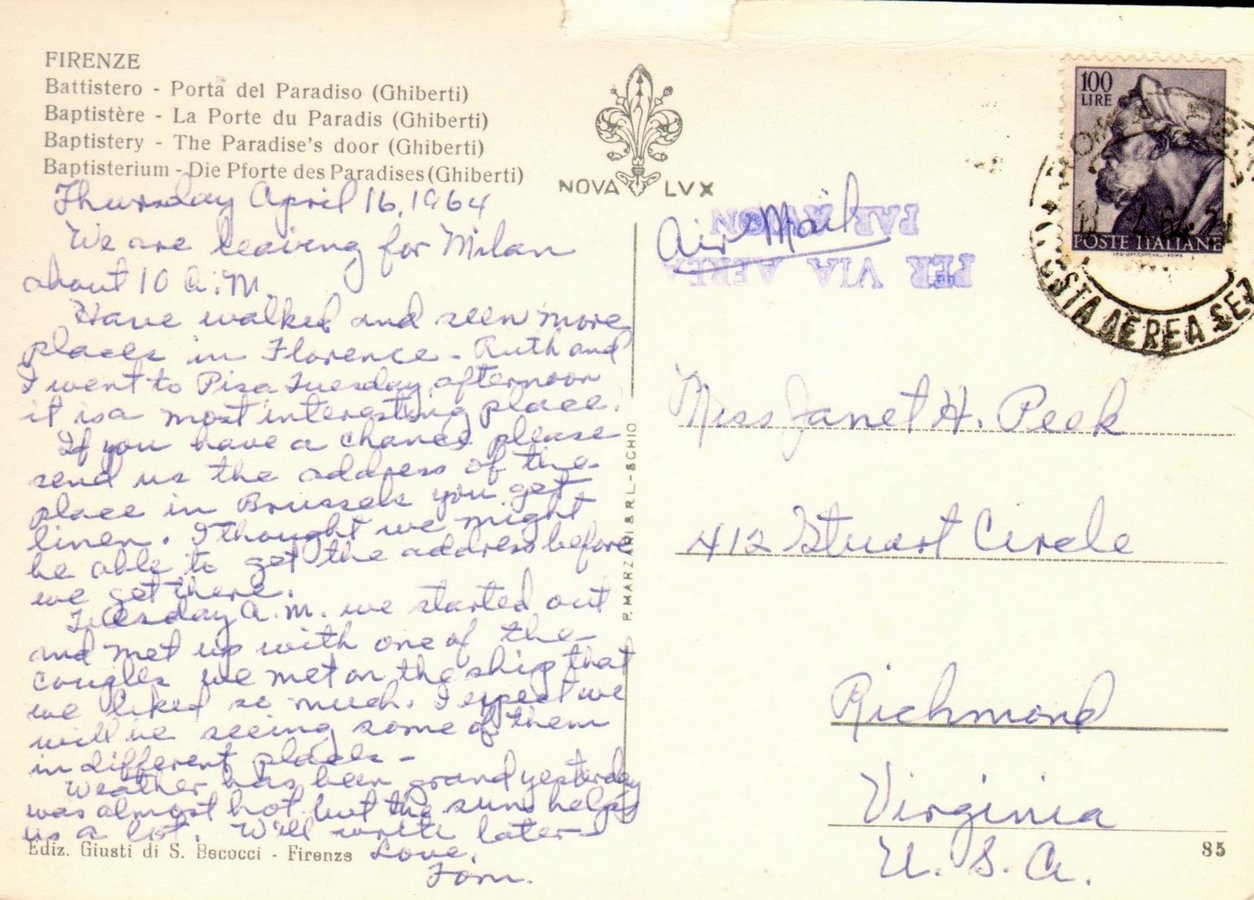 FIRENZE
Battistero - Porta del Paradiso (Ghiberti)
Baptistère - La Porte du Paradis (Ghiberti)
Baptistery - The Paradise's door (Ghiberti)
Baptisterium - Die Pforte des Paradises (Ghiberti)
NOVA LVX
Thursday April 16, 1964
We are leaving for Milan
about 10 A.M.
Have walked and seen more
places in Florence - Ruth and
I went to Pisa Tuesday afternoon
it is a most interesting place.
If you have a chance please
send us the address of the
place in Brussels you get
linen. I thought we might
be able to get the address before
we get there.
Tuesday A.M. we started out
and met up with one of the
couples we met on the ship that
we liked so much. I expect we
will be seeing some of them
in different places -
Weather has been grand yesterday
was almost hot but the sun helps
us a lot. Will write later -
Love,
Tom.
Ediz. Giusti di S. Becocci - Firenze
P. MARZARI S.R.L. - SCHIO
100
LIRE
POSTE ITALIANE
POSTA AEREA SEZ
PAR AVION
PER VIA AEREA
Air Mail
Miss Janet H. Peek
412 Stuart Circle
Richmond
Virginia
U.S.A.
85